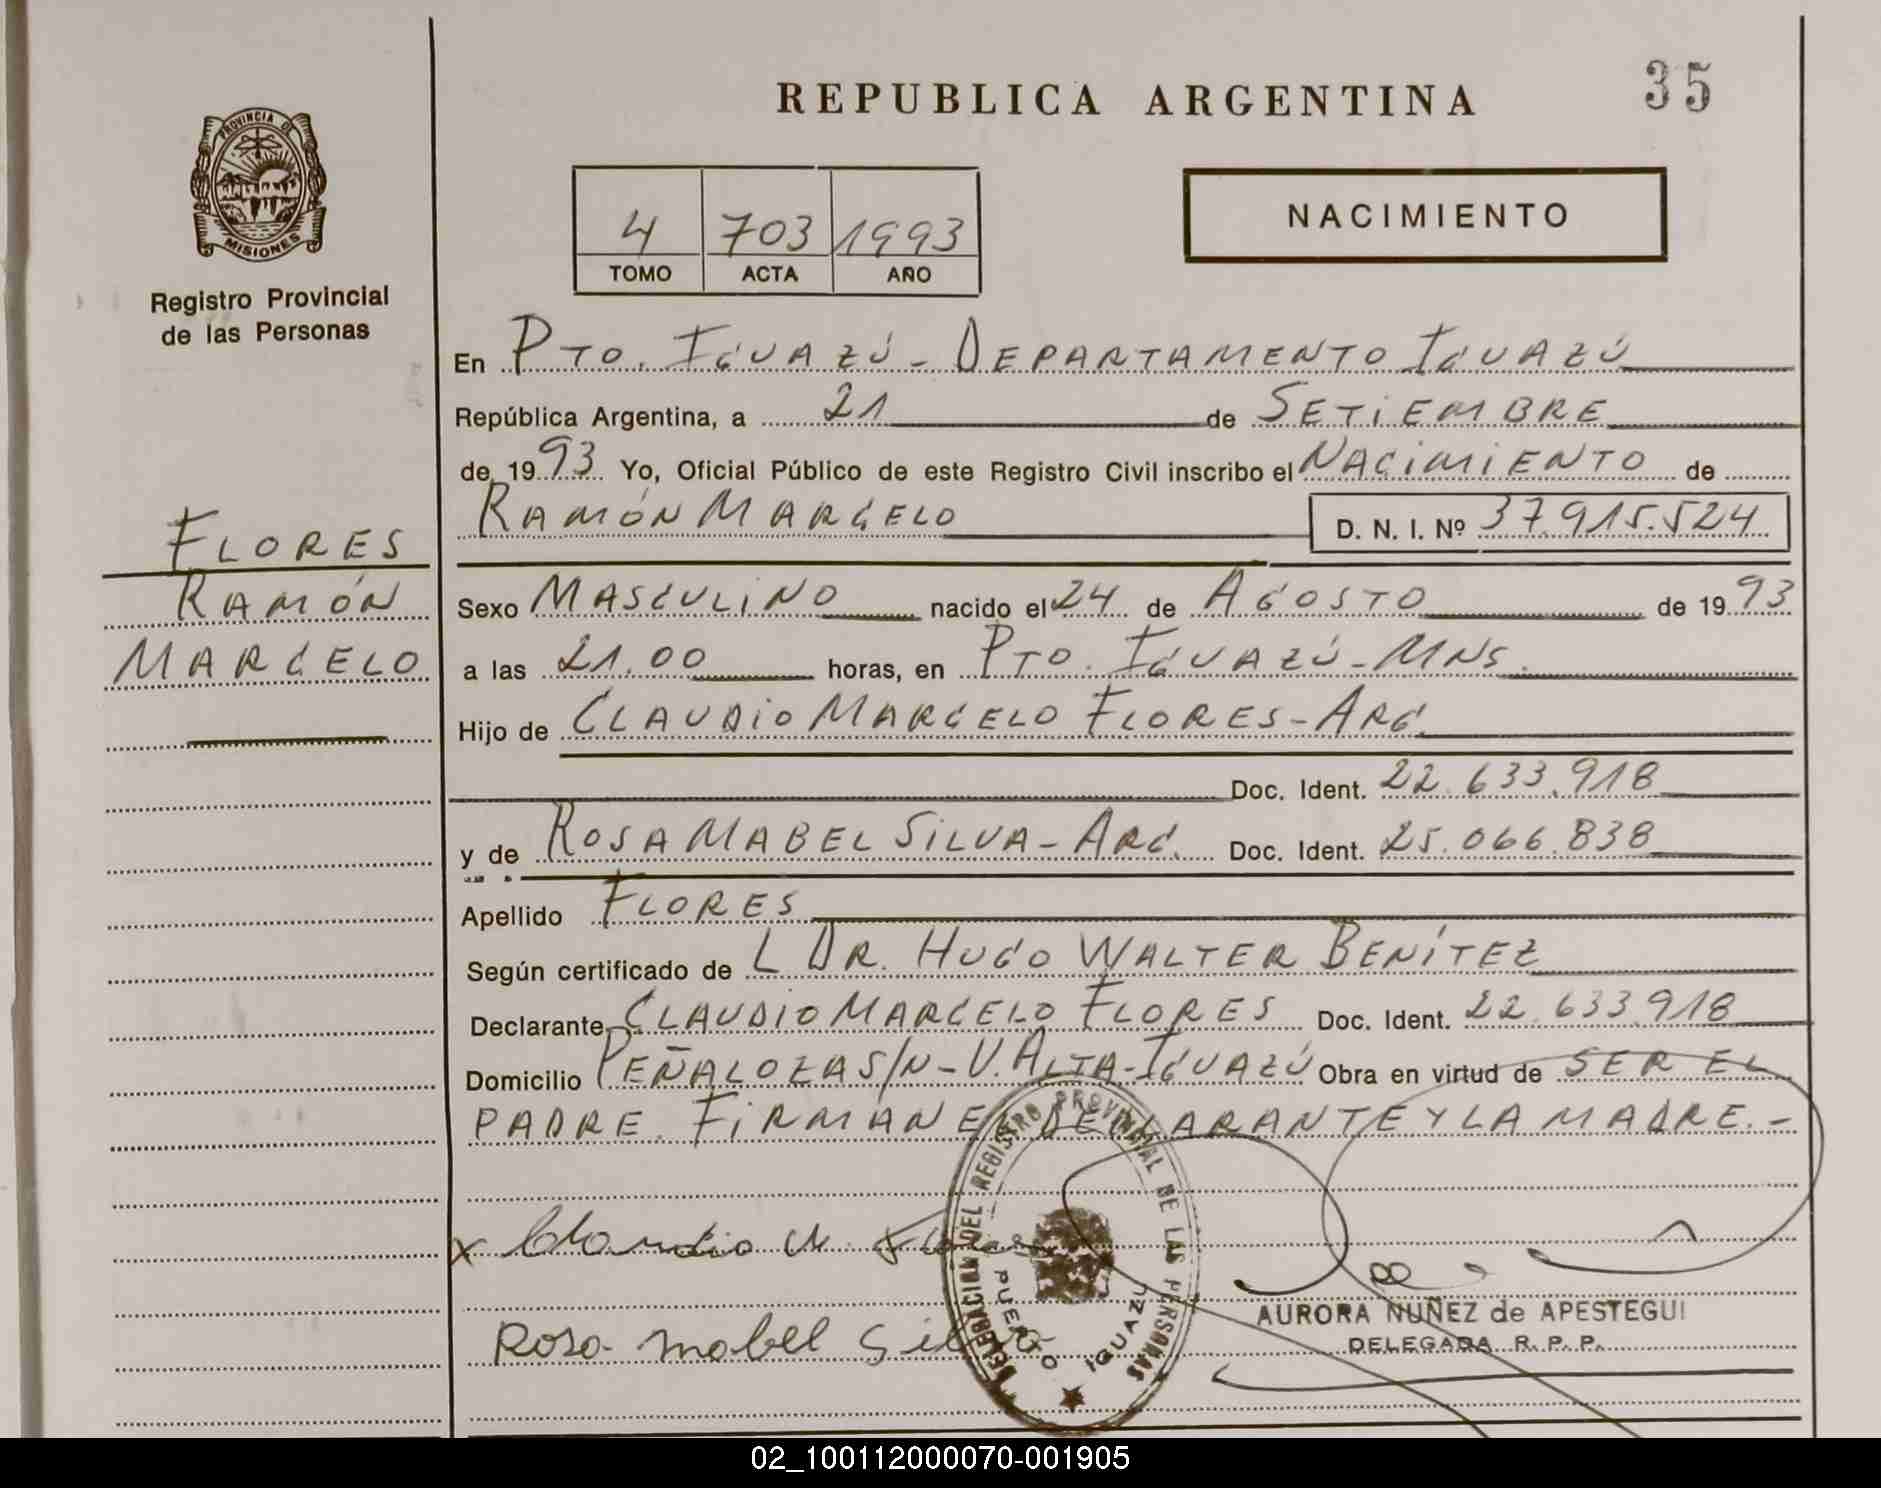 REPUBLICA ARGENTINA
35
PROVINCIA DE
MISIONES
Registro Provincial
de las Personas
4 703 1993
TOMO ACTA AÑO
NACIMIENTO
En PTO. IGUAZÚ - DEPARTAMENTO IGUAZÚ
República Argentina, a 21 de SETIEMBRE
de 1993 Yo, Oficial Público de este Registro Civil inscribo el NACIMIENTO de
RAMÓN MARCELO D. N. I. Nº 37.915.524
FLORES
RAMÓN
MARCELO
Sexo MASCULINO nacido el 24 de AGOSTO de 1993
a las 21.00 horas, en PTO. IGUAZÚ - MNS.
Hijo de CLAUDIO MARCELO FLORES - ARG.
Doc. Ident. 22.633.918
y de ROSA MABEL SILVA - ARG. Doc. Ident. 25.066.838
Apellido FLORES
Según certificado de L DR. HUGO WALTER BENÍTEZ
Declarante CLAUDIO MARCELO FLORES Doc. Ident. 22.633.918
Domicilio PEÑALOZA S/N - V. ALTA - IGUAZÚ Obra en virtud de SER EL
PADRE. FIRMAN EL DECLARANTE Y LA MADRE. -
x Claudio M. Flores
Rosa mabel Silva
DELEGACION DEL REGISTRO PROVINCIAL DE LAS PERSONAS
PUERTO IGUAZU
AURORA NUÑEZ de APESTEGUI
DELEGADA R. P. P.
02_100112000070-001905